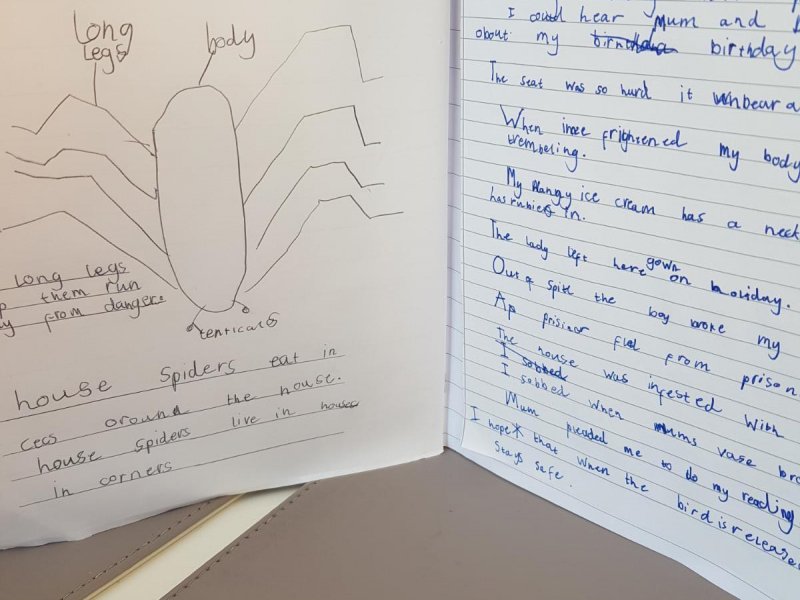 Long
Legs
body
long legs
them run
from danger.
tenticals
house spiders eat in
cecs around the house.
house spiders live in houses
in corners
I could hear Mum and
about my birthday
The seat was so hurd it unbear
When frightened my body
trembeling.
My ice cream has a neck
has rubies in.
The lady left here gown on holiday.
Out of spite the boy broke my
Ap prisinor fled from prison
The house was infested with
I sobbed
I sobbed when mums vase bro
Mum pleaded me to do my reading
I hope that when the bird is released
stays safe.